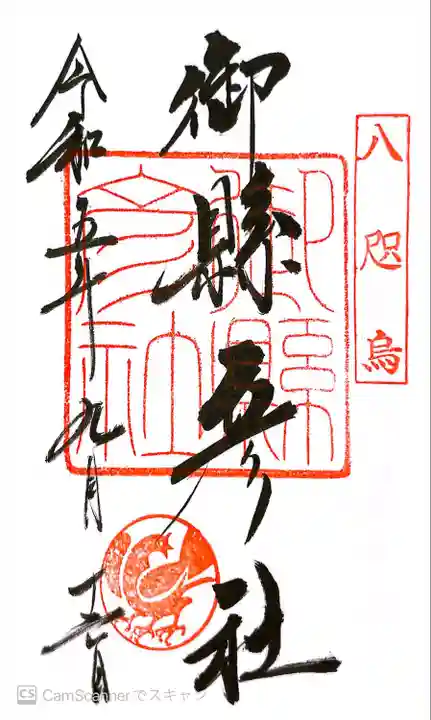 八咫烏
御縣彦社
御縣
彦社
令和五年九月十六日
CS CamScannerでスキャン